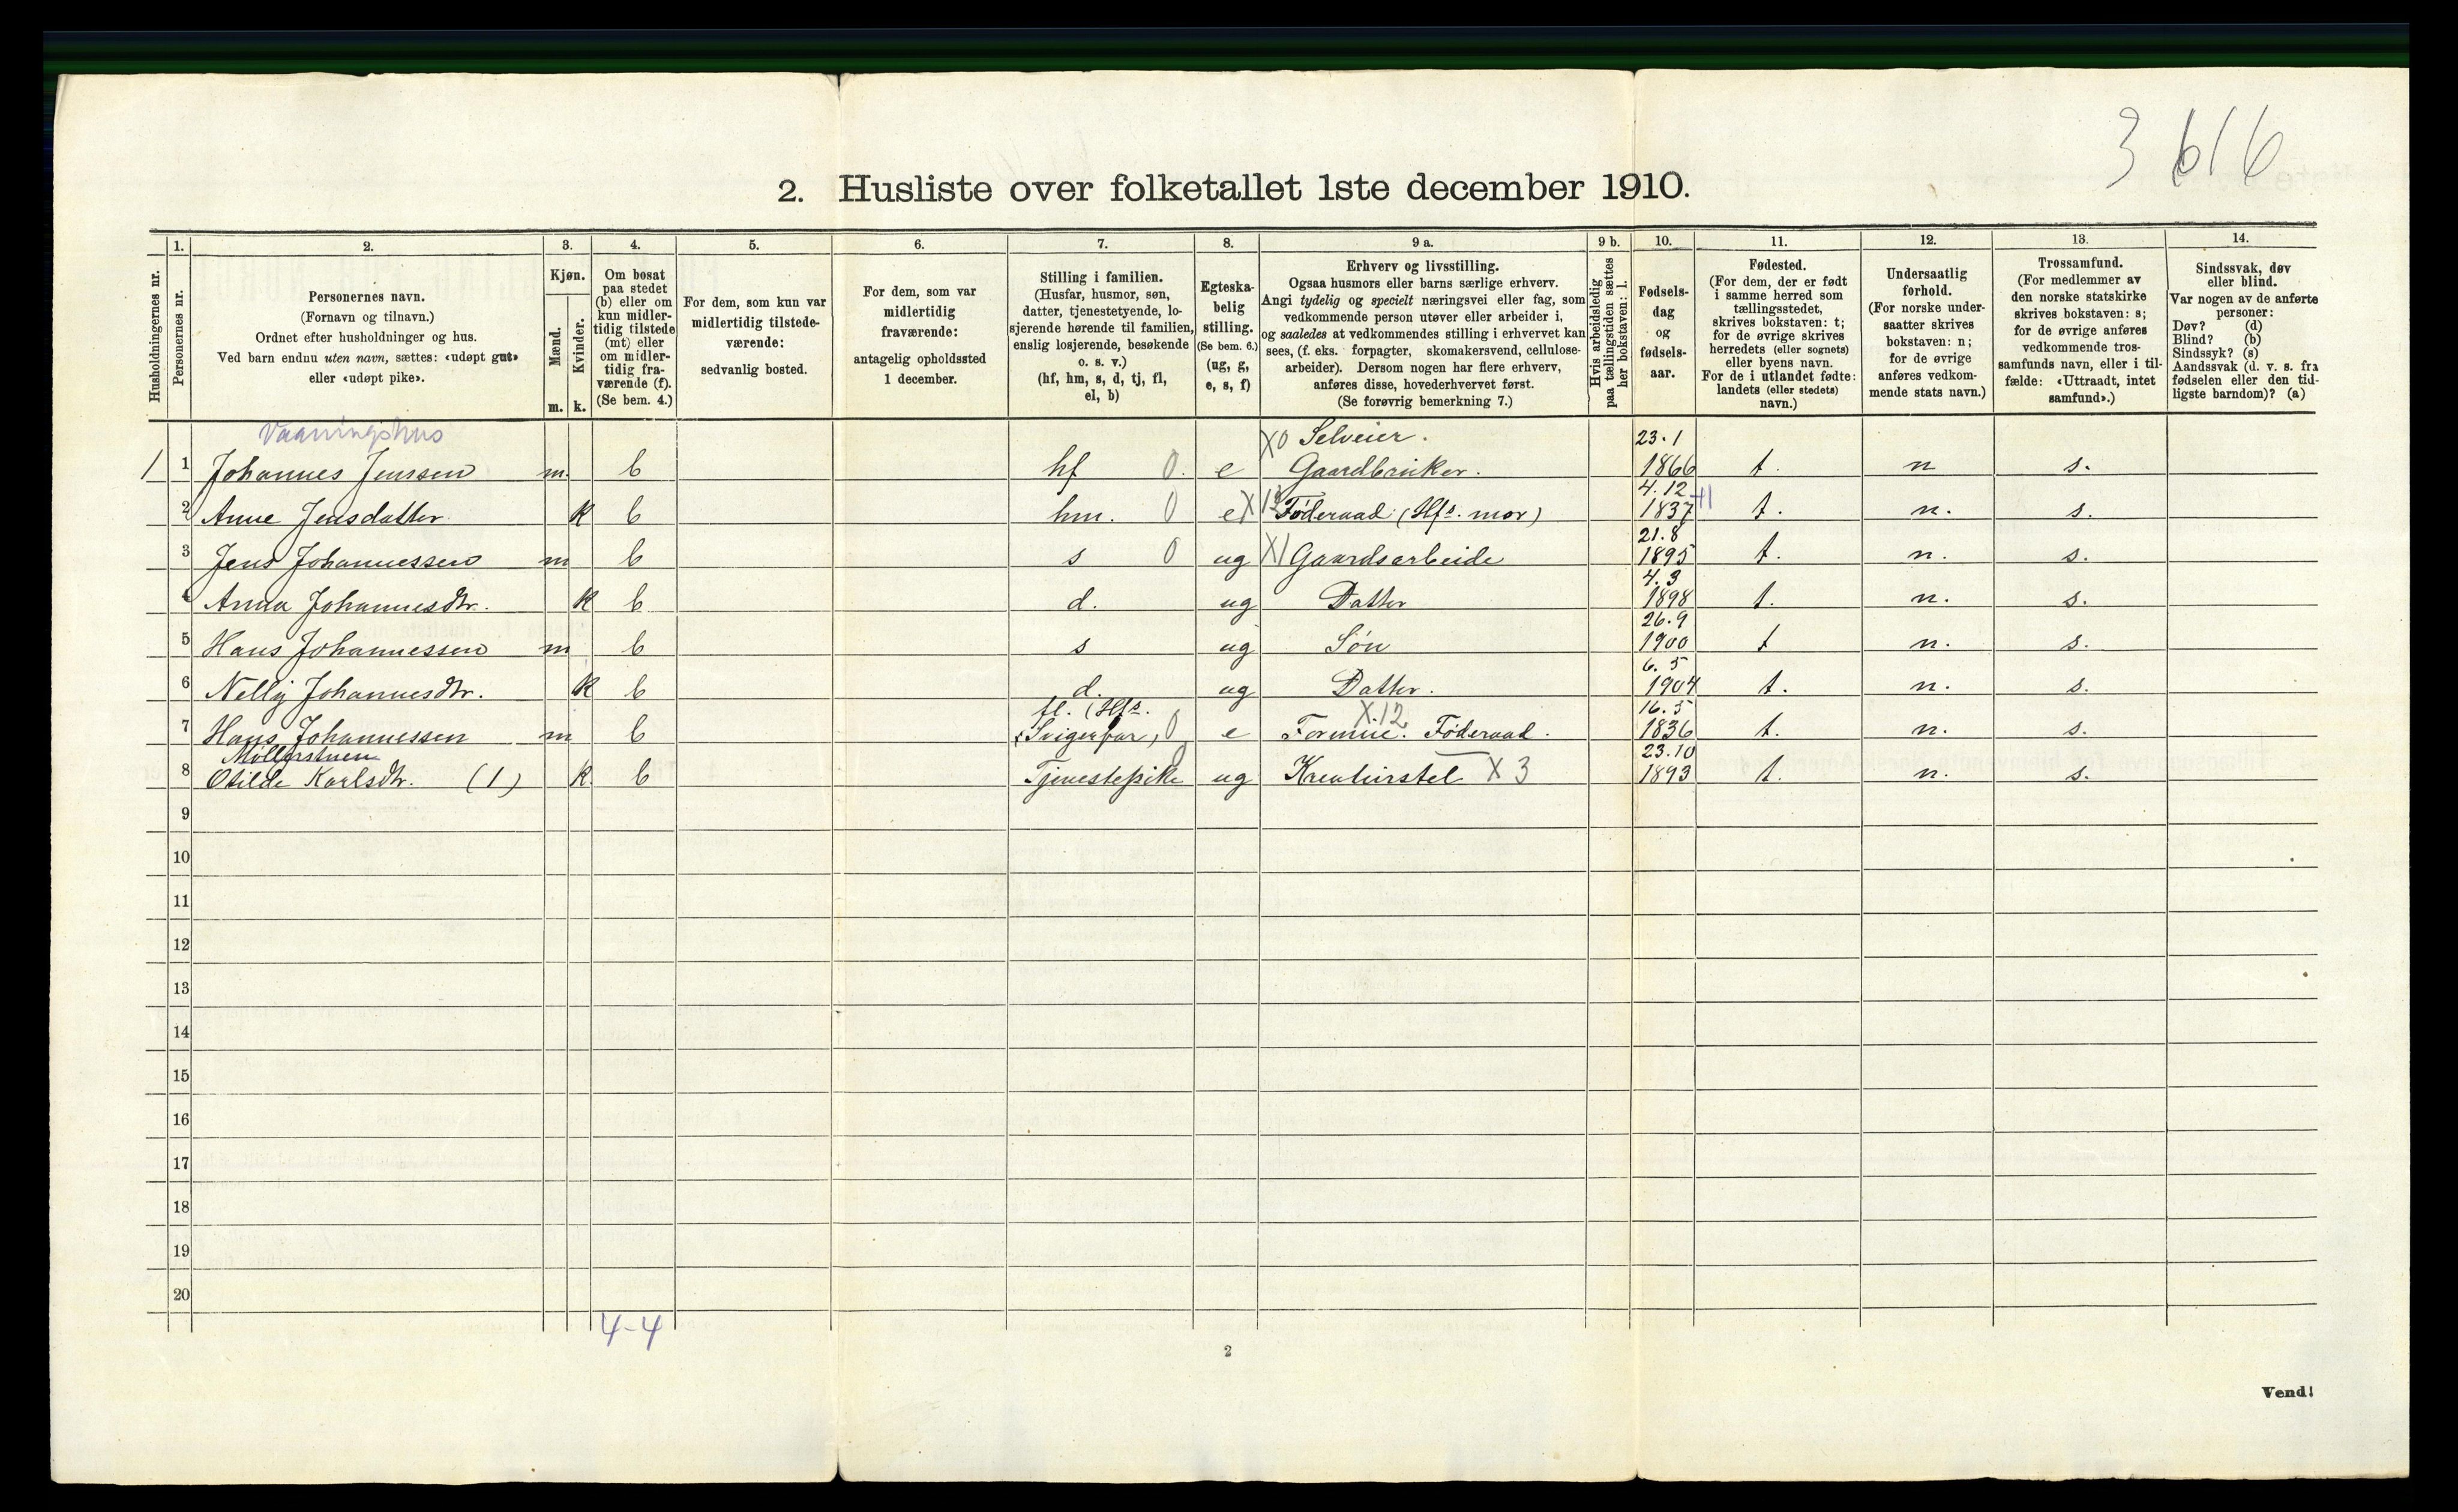 3 616
2. Husliste over folketallet 1ste december 1910.
Husholdningernes nr.
1.
Personernes nr.
2.
Personernes navn.
(Fornavn og tilnavn.)
Ordnet efter husholdninger og hus.
Ved barn endnu uten navn, sættes: «udøpt gut»
eller «udøpt pike».
3.
Kjøn.
Mænd.
m.
Kvinder.
k.
4.
Om bosat
paa stedet
(b) eller om
kun midler-
tidig tilstede
(mt) eller
om midler-
tidig fra-
værende (f).
(Se bem. 4.)
5.
For dem, som kun var
midlertidig tilstede-
værende:
sedvanlig bosted.
6.
For dem, som var
midlertidig
fraværende:
antagelig opholdssted
1 december.
7.
Stilling i familien.
(Husfar, husmor, søn,
datter, tjenestetyende, lo-
sjerende hørende til familien,
enslig losjerende, besøkende
o. s. v.)
(hf, hm, s, d, tj, fl,
el, b)
8.
Egteska-
belig
stilling.
(Se bem. 6.)
(ug, g,
e, s, f)
9 a.
Erhverv og livsstilling.
Ogsaa husmors eller barns særlige erhverv.
Angi tydelig og specielt næringsvei eller fag, som
vedkommende person utøver eller arbeider i,
og saaledes at vedkommendes stilling i erhvervet kan
sees, (f. eks. forpagter, skomakersvend, cellulose-
arbeider). Dersom nogen har flere erhverv,
anføres disse, hovederhvervet først.
(Se forøvrig bemerkning 7.)
9 b.
Hvis arbeidsledig
paa tællingstiden sættes
her bokstaven: l.
10.
Fødsels-
dag
og
fødsels-
aar.
11.
Fødested.
(For dem, der er født
i samme herred som
tællingsstedet,
skrives bokstaven: t;
for de øvrige skrives
herredets (eller sognets)
eller byens navn.
For de i utlandet fødte:
landets (eller stedets)
navn.)
12.
Undersaatlig
forhold.
(For norske under-
saatter skrives
bokstaven: n;
for de øvrige
anføres vedkom-
mende stats navn.)
13.
Trossamfund.
(For medlemmer av
den norske statskirke
skrives bokstaven: s;
for de øvrige anføres
vedkommende tros-
samfunds navn, eller i til-
fælde: «Uttraadt, intet
samfund».)
14.
Sindssvak, døv
eller blind.
Var nogen av de anførte
personer:
Døv? (d)
Blind? (b)
Sindssyk? (s)
Aandssvak (d. v. s. fra
fødselen eller den tid-
ligste barndom)? (a)
Vaaningshus
X0 Selveier. 23.1
1 1 Johannes Jenssen m. b hf 0. e Gaardbruker. 1866 t. n s.
4.12
2 Anne Jensdatter k b hm. 0 e X 12 Føderaad (Hfs. mor) 1837 t. n. s.
21.8
3 Jens Johannessen m b s 0 ug X1 Gaardsarbeide 1895 t. n. s.
4.3
4 Anna Johannesdtr. k b d. ug Datter 1898 t. n. s.
26.9
5 Hans Johannessen m b s ug Søn 1900 t n. s.
6.5
6 Nelly Johannesdtr. k b d. ug Datter. 1904 t. n. s.
fl. (Hfs. X.12 16.5
7 Hans Johannessen m b Svigerfar) 0 e Formue. Føderaad. 1836 t. n. s.
Møllerstuen 0 23.10
8 Otilde Karlsdtr. (1) k. b Tjenestepike ug Kreaturstel X 3 1893 t. n. s.
9
10
11
12
13
14
15
16
17
18
19
20
4-4
2
Vend!